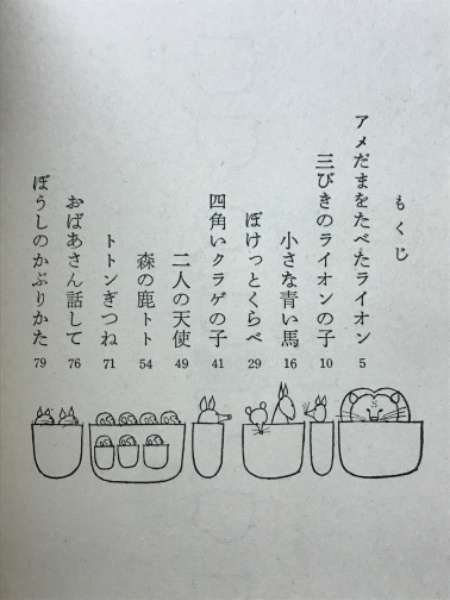 もくじ
アメだまをたべたライオン 5
三びきのライオンの子 10
小さな青い馬 16
ぽけっとくらべ 29
四角いクラゲの子 41
二人の天使 49
森の鹿トト 54
トトンぎつね 71
おばあさん話して 76
ぼうしのかぶりかた 79
S